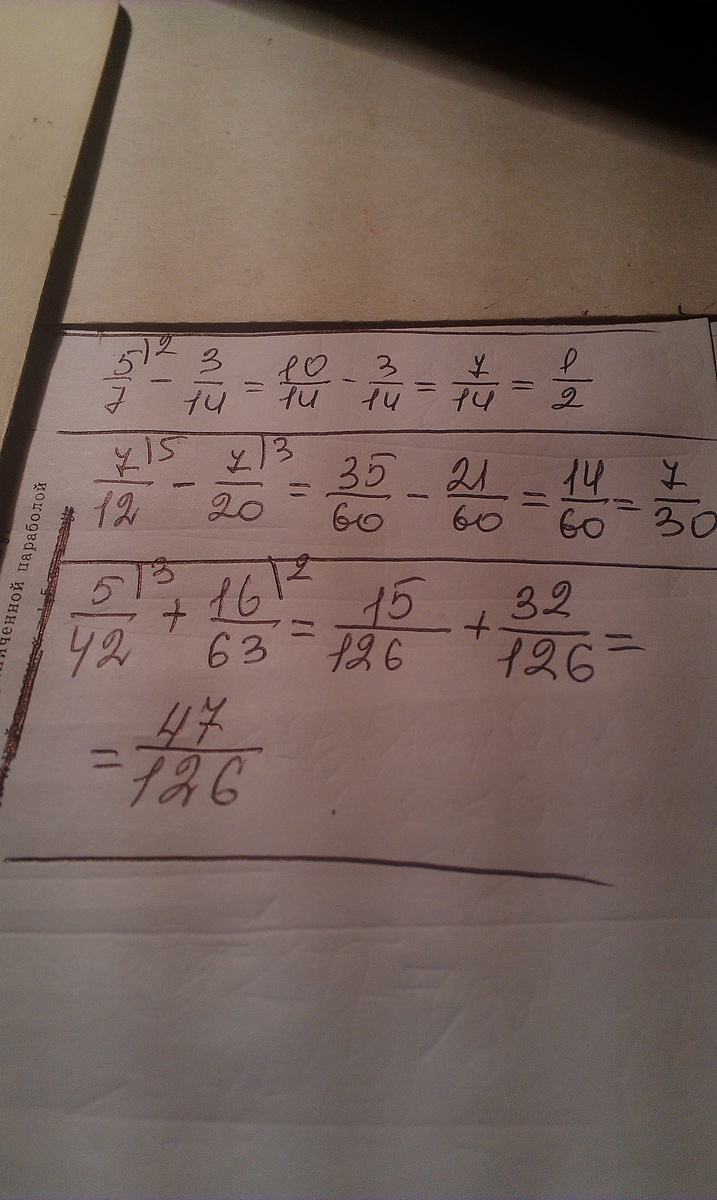 5/7 |2 - 3/14 = 10/14 - 3/14 = 7/14 = 1/2
7/12 |5 - 7/20 |3 = 35/60 - 21/60 = 14/60 = 7/30
5/42 |3 + 16/63 |2 = 15/126 + 32/126 =
= 47/126
параболой